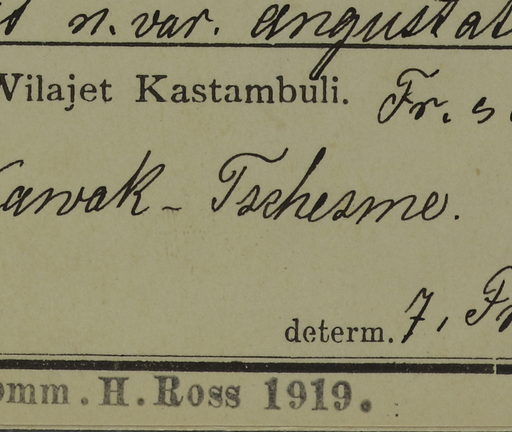 n. var. angustat
Wilajet Kastambuli. Fr. s
Kawak - Tscheesme.
determ. 7, Fr
omm. H. Ross 1919.